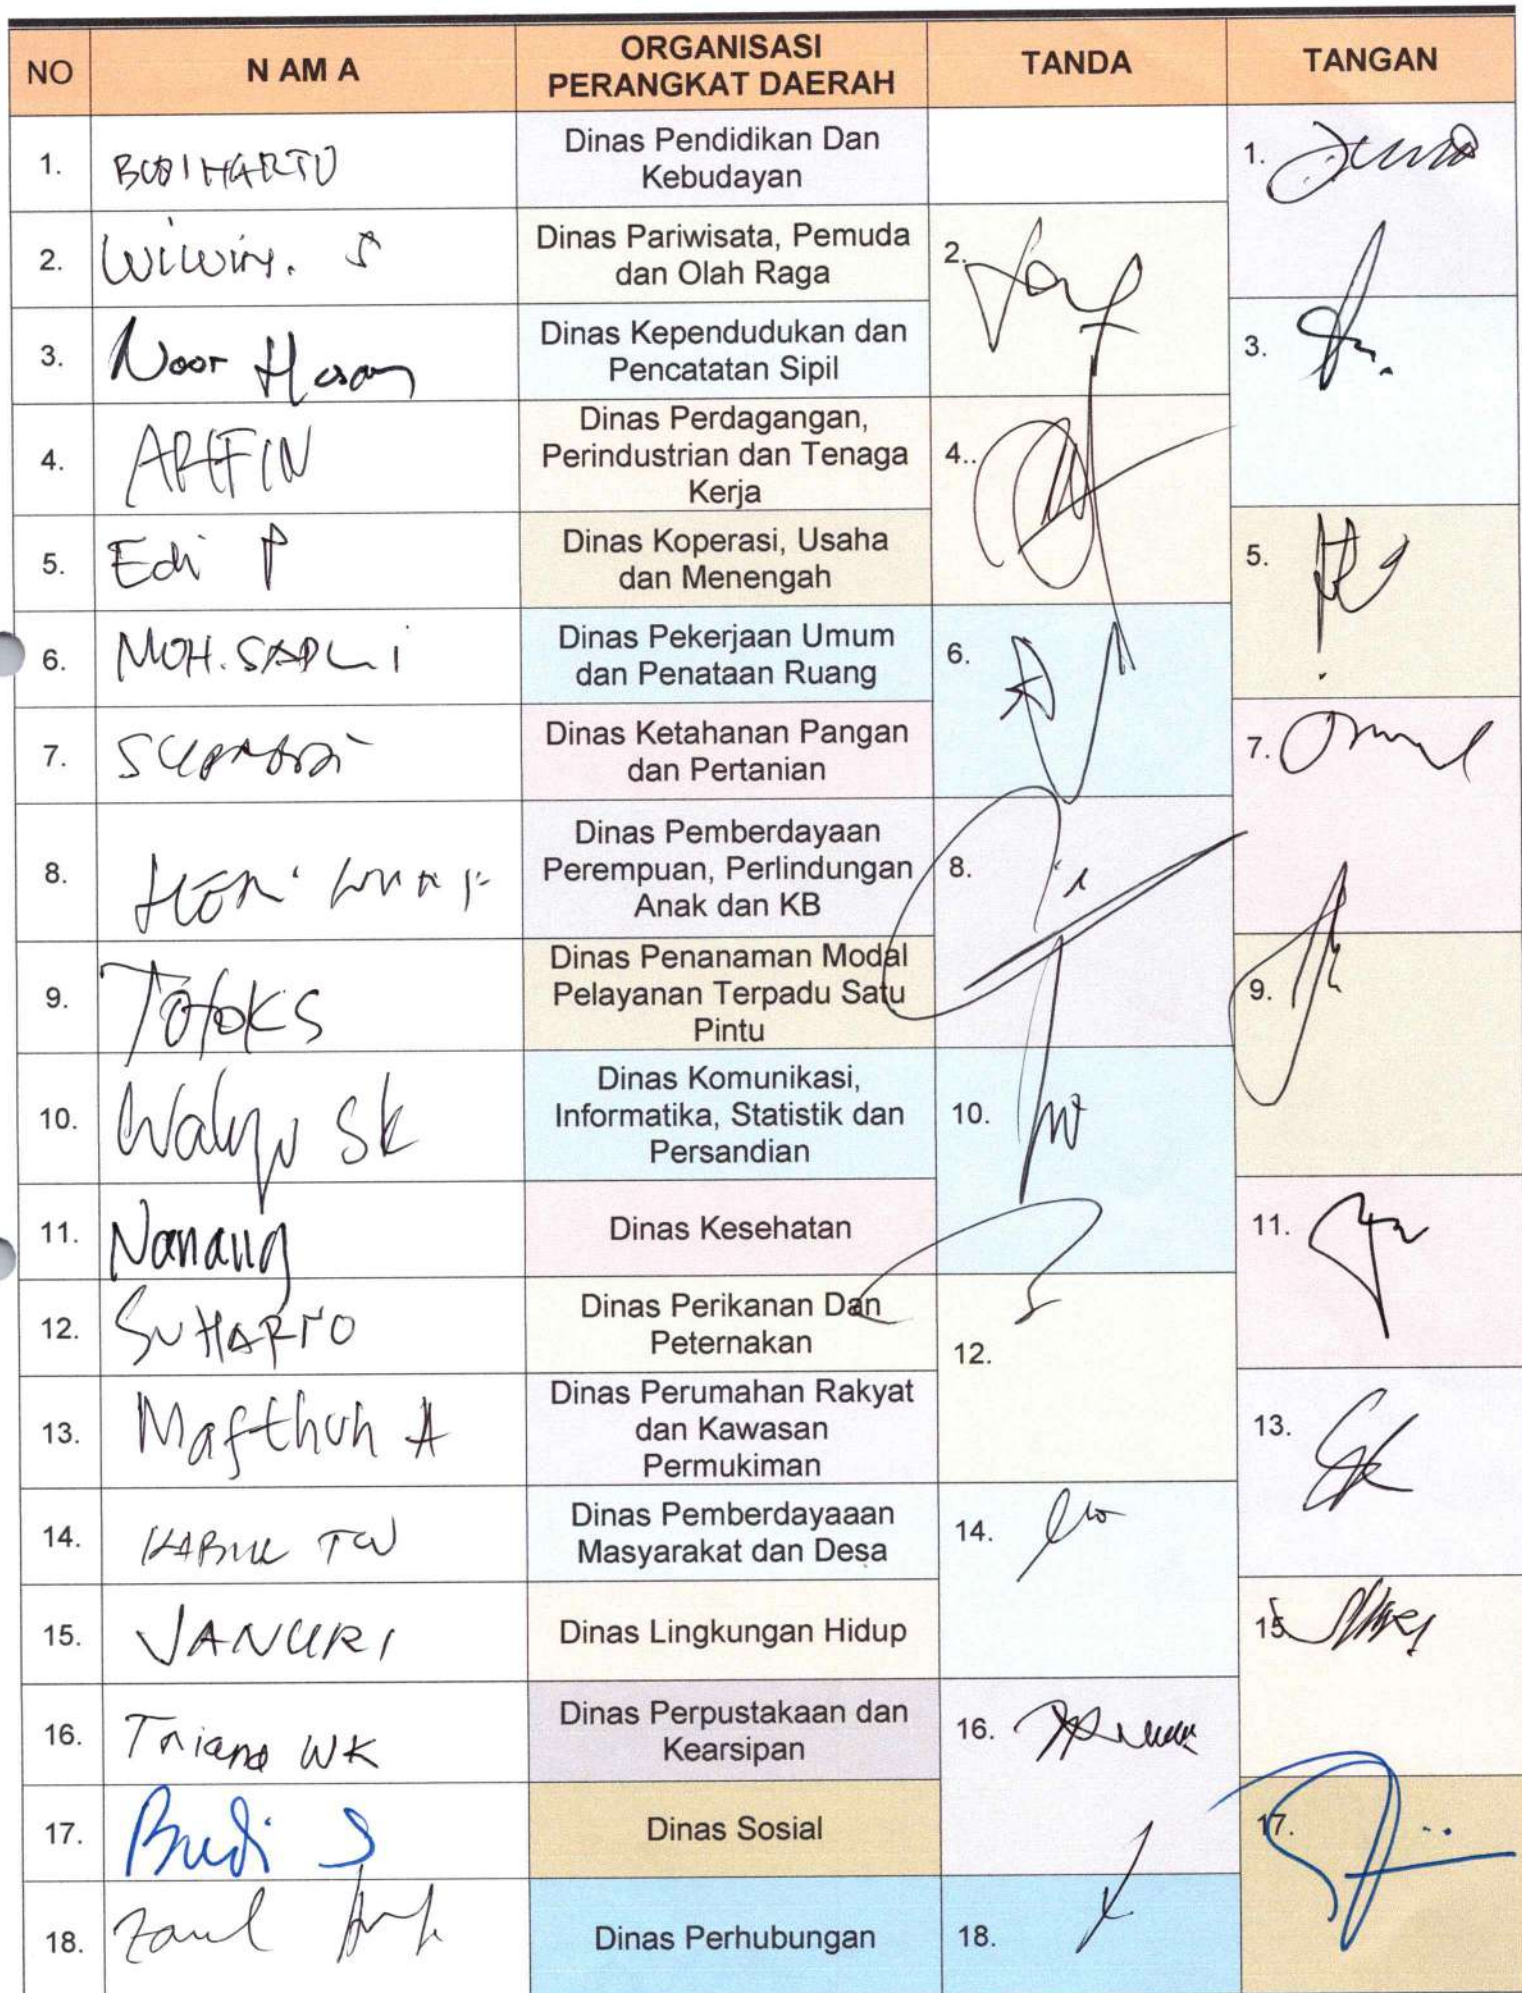 NO
N AM A
ORGANISASI
PERANGKAT DAERAH
TANDA
TANGAN
1.
BUDIHARTO
Dinas Pendidikan Dan
Kebudayan
1.
2.
Wiwin. S
Dinas Pariwisata, Pemuda
dan Olah Raga
2.
3.
Noor Hasan
Dinas Kependudukan dan
Pencatatan Sipil
3.
4.
ARIFIN
Dinas Perdagangan,
Perindustrian dan Tenaga
Kerja
4..
5.
Edi P
Dinas Koperasi, Usaha
dan Menengah
5.
6.
MOH. SADLI
Dinas Pekerjaan Umum
dan Penataan Ruang
6.
7.
Dinas Ketahanan Pangan
dan Pertanian
7.
8.
Dinas Pemberdayaan
Perempuan, Perlindungan
Anak dan KB
8.
9.
Totok S
Dinas Penanaman Modal
Pelayanan Terpadu Satu
Pintu
9.
10.
Wahyu SK
Dinas Komunikasi,
Informatika, Statistik dan
Persandian
10.
11.
Nanang
Dinas Kesehatan
11.
12.
SUHARTO
Dinas Perikanan Dan
Peternakan
12.
13.
Mafthuh A
Dinas Perumahan Rakyat
dan Kawasan
Permukiman
13.
14.
KABUL TW
Dinas Pemberdayaaan
Masyarakat dan Desa
14.
15.
JANURI
Dinas Lingkungan Hidup
15
16.
Triana WK
Dinas Perpustakaan dan
Kearsipan
16.
17.
Budi S
Dinas Sosial
17.
18.
Dinas Perhubungan
18.